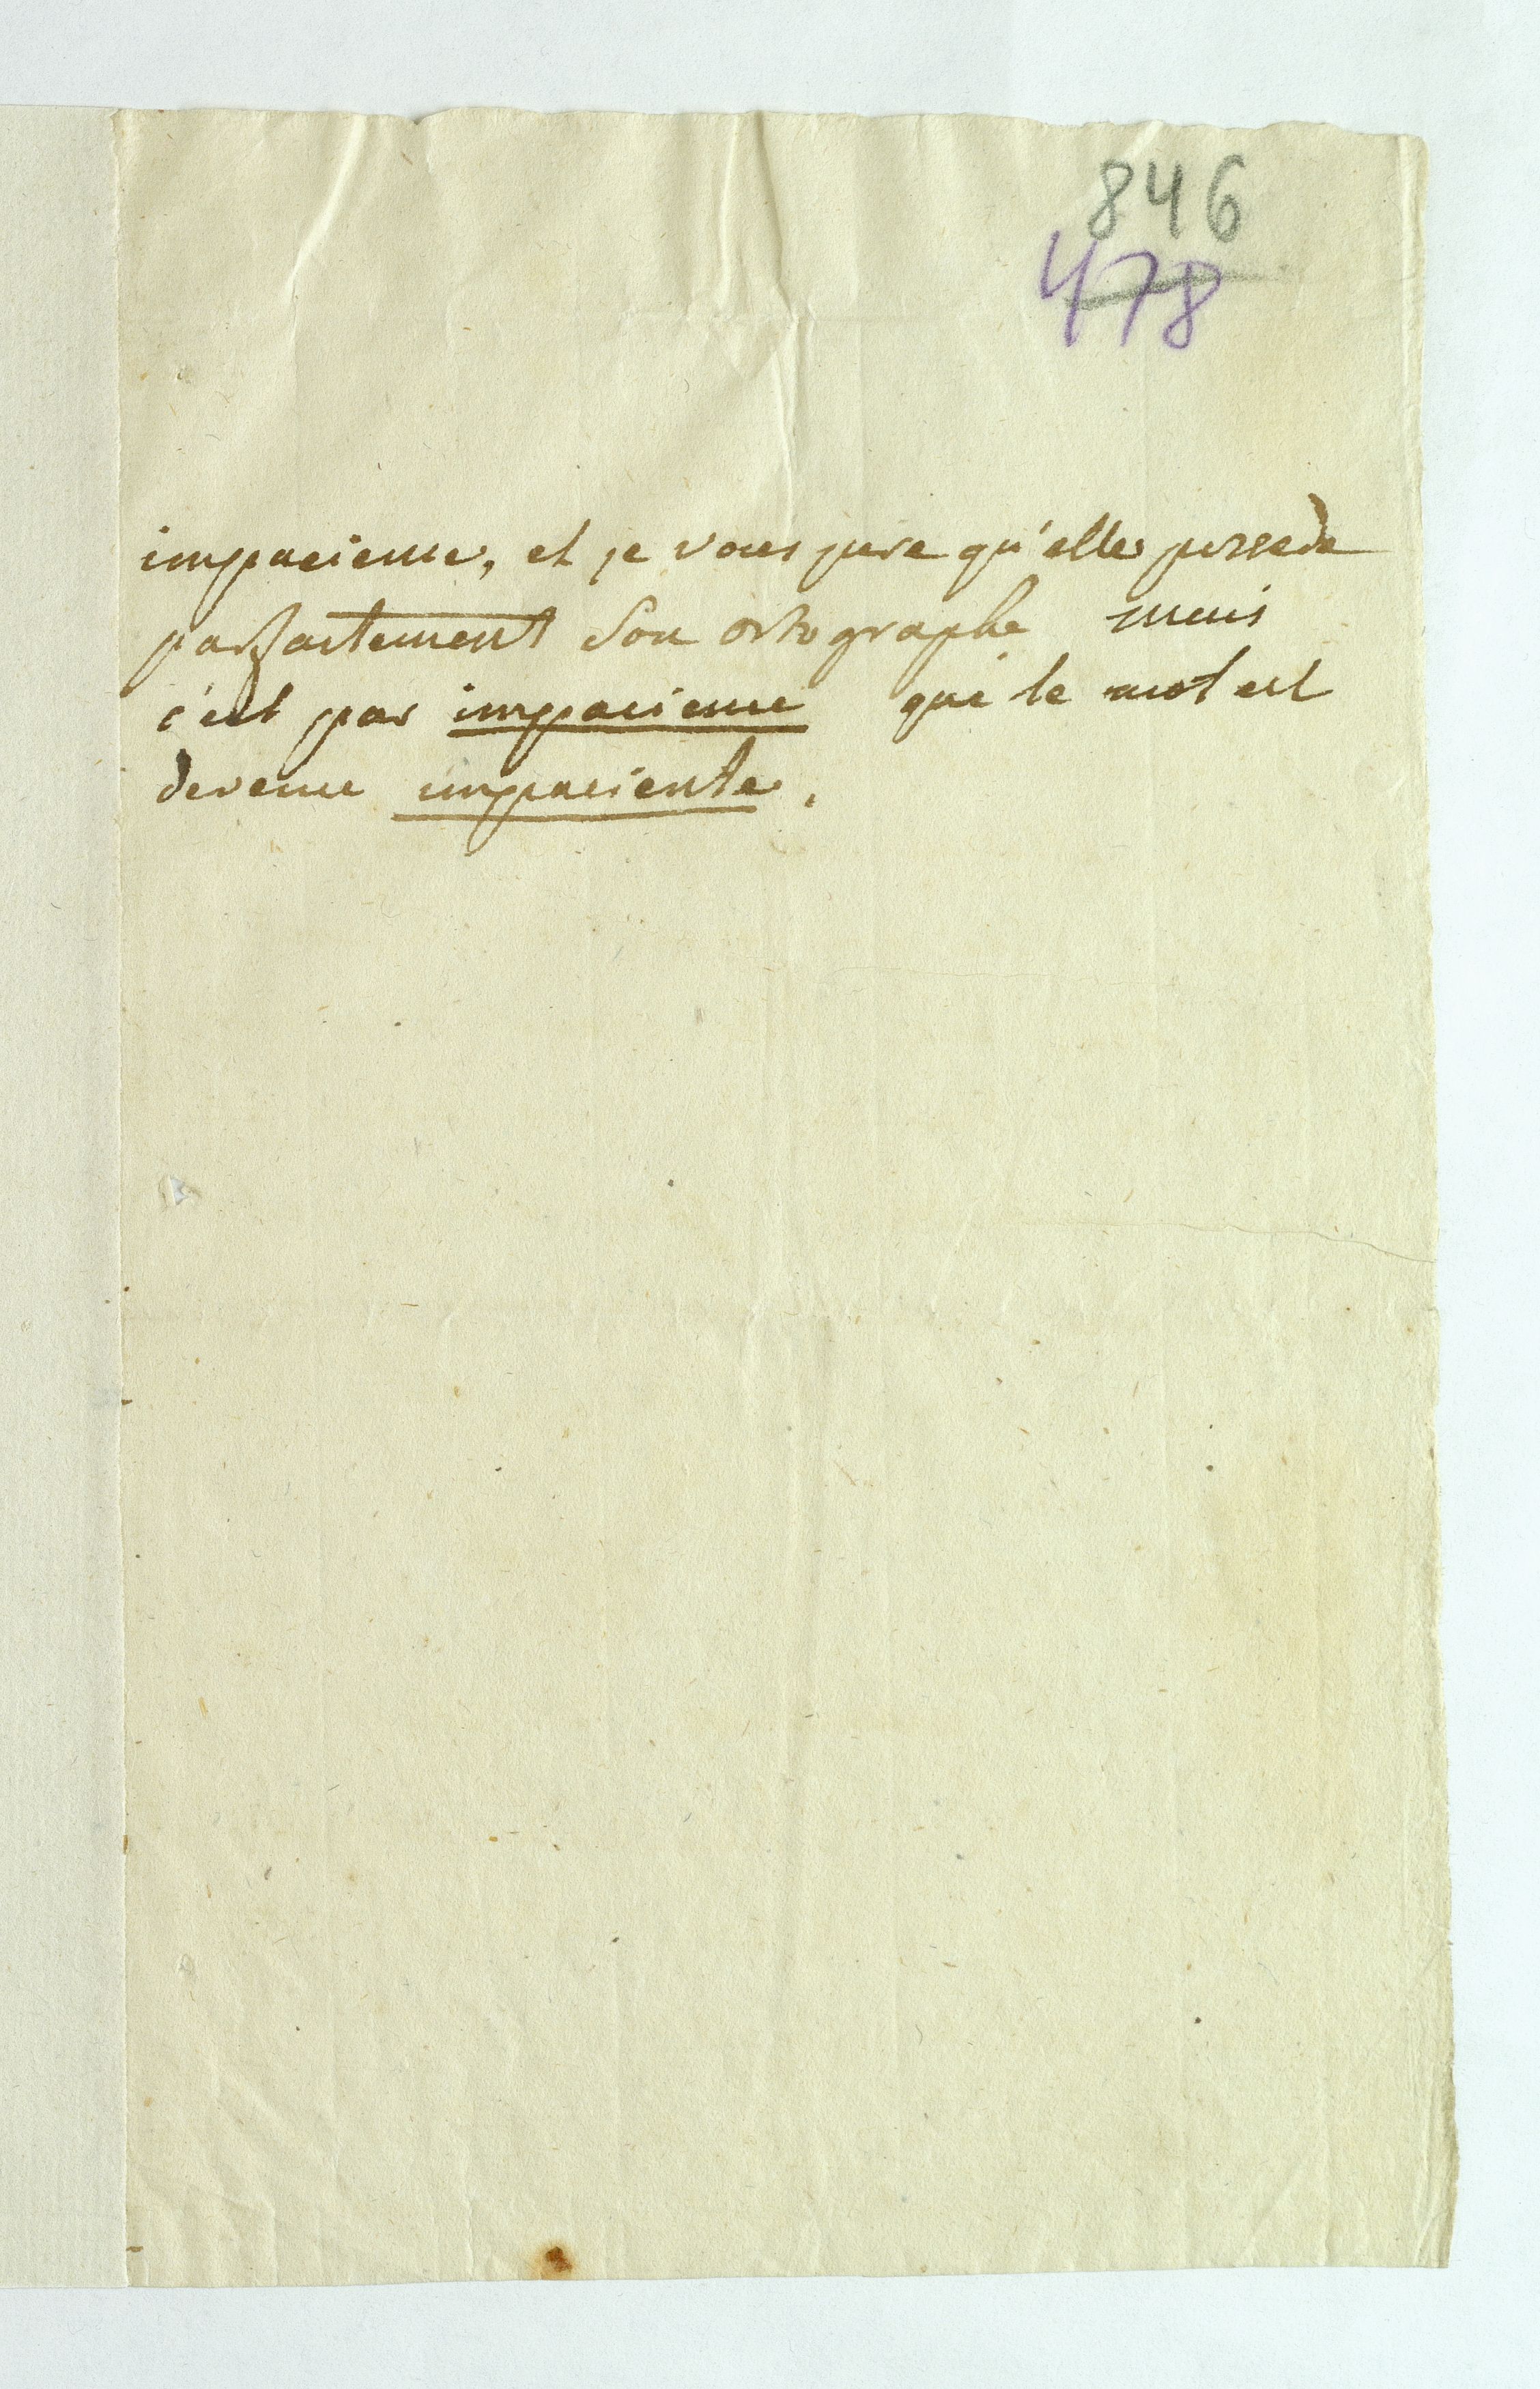 846
478
impacience, et je vous jure qu'elle possede
parfaitement son ortographe mais
c'est par impacience que le mot est
devenu impaciente.